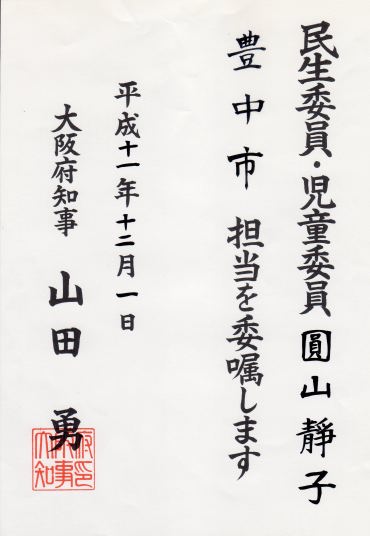 民生委員・児童委員 圓山靜子
豊中市 担当を委嘱します
平成十一年十二月一日
大阪府知事 山田勇